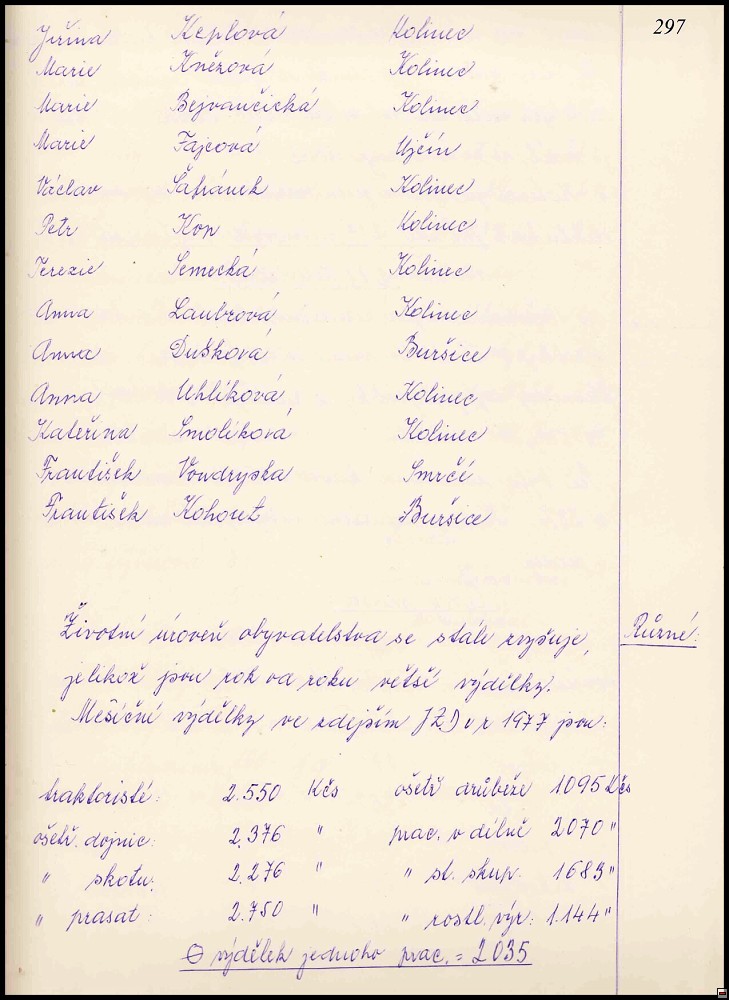 297
Jiřina Keplová Kolinec
Marie Kněžová Kolinec
Marie Bejvančická Kolinec
Marie Fajcová Ujčín
Václav Šafránek Kolinec
Petr Kop Kolinec
Terezie Semecká Kolinec
Anna Laubrová Kolinec
Anna Dušková Buršice
Anna Uhlíková Kolinec
Kateřina Smolíková Kolinec
František Voudryska Smrčí
František Kohout Buršice
Různé:
Životní úroveň obyvatelstva se stále zvyšuje,
jelikož jsou rok od roku větší výdělky.
Měsíční výdělky ve zdejším JZD v r 1977 jsou:
traktoristé: 2.550 Kčs ošetř drůbeže 1095 Kčs
ošetř. dojnic: 2.376 " prac. v dílně 2070 "
" skotu: 2.276 " " st. skup. 1683 "
" prasat: 2.750 " " rostl. výr: 1.144 "
∅ výdělek jednoho prac. = 2035